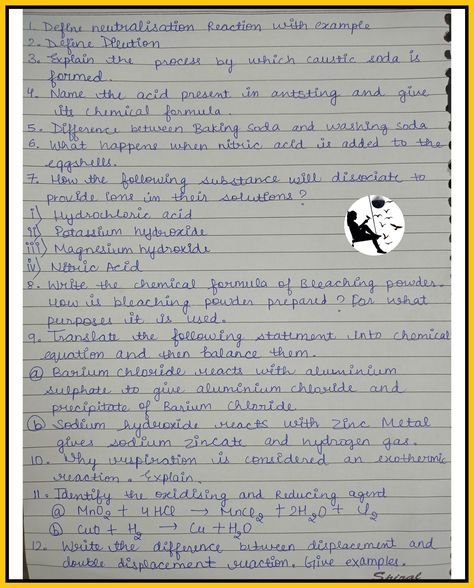 1. Define neutralisation Reaction with example
2. Define Dilution
3. Explain the process by which caustic soda is
formed.
4. Name the acid present in antsting and give
its chemical formula.
5. Difference between Baking soda and washing soda
6. What happens when nitric acid is added to the
eggshells.
7. How the following substance will dissociate to
provide ions in their solutions?
i) Hydrochloric acid
ii) Potassium hydroxide
iii) Magnesium hydroxide
iv) Nitric Acid
8. Write the chemical formula of Bleaching powder.
How is bleaching powder prepared? For what
purposes it is used.
9. Translate the following statement into chemical
equation and then balance them.
(a) Barium chloride reacts with aluminium
sulphate to give aluminium chloride and
precipitate of Barium Chloride.
(b) Sodium hydroxide reacts with Zinc Metal
gives sodium zincate and hydrogen gas.
10. Why respiration is considered an exothermic
reaction. Explain.
11. Identify the oxidising and Reducing agent
(a) MnO2 + 4HCl → MnCl2 + 2H2O + Cl2
(b) CuO + H2 → Cu + H2O
12. Write the difference between displacement and
double displacement reaction. Give examples.
Spiral